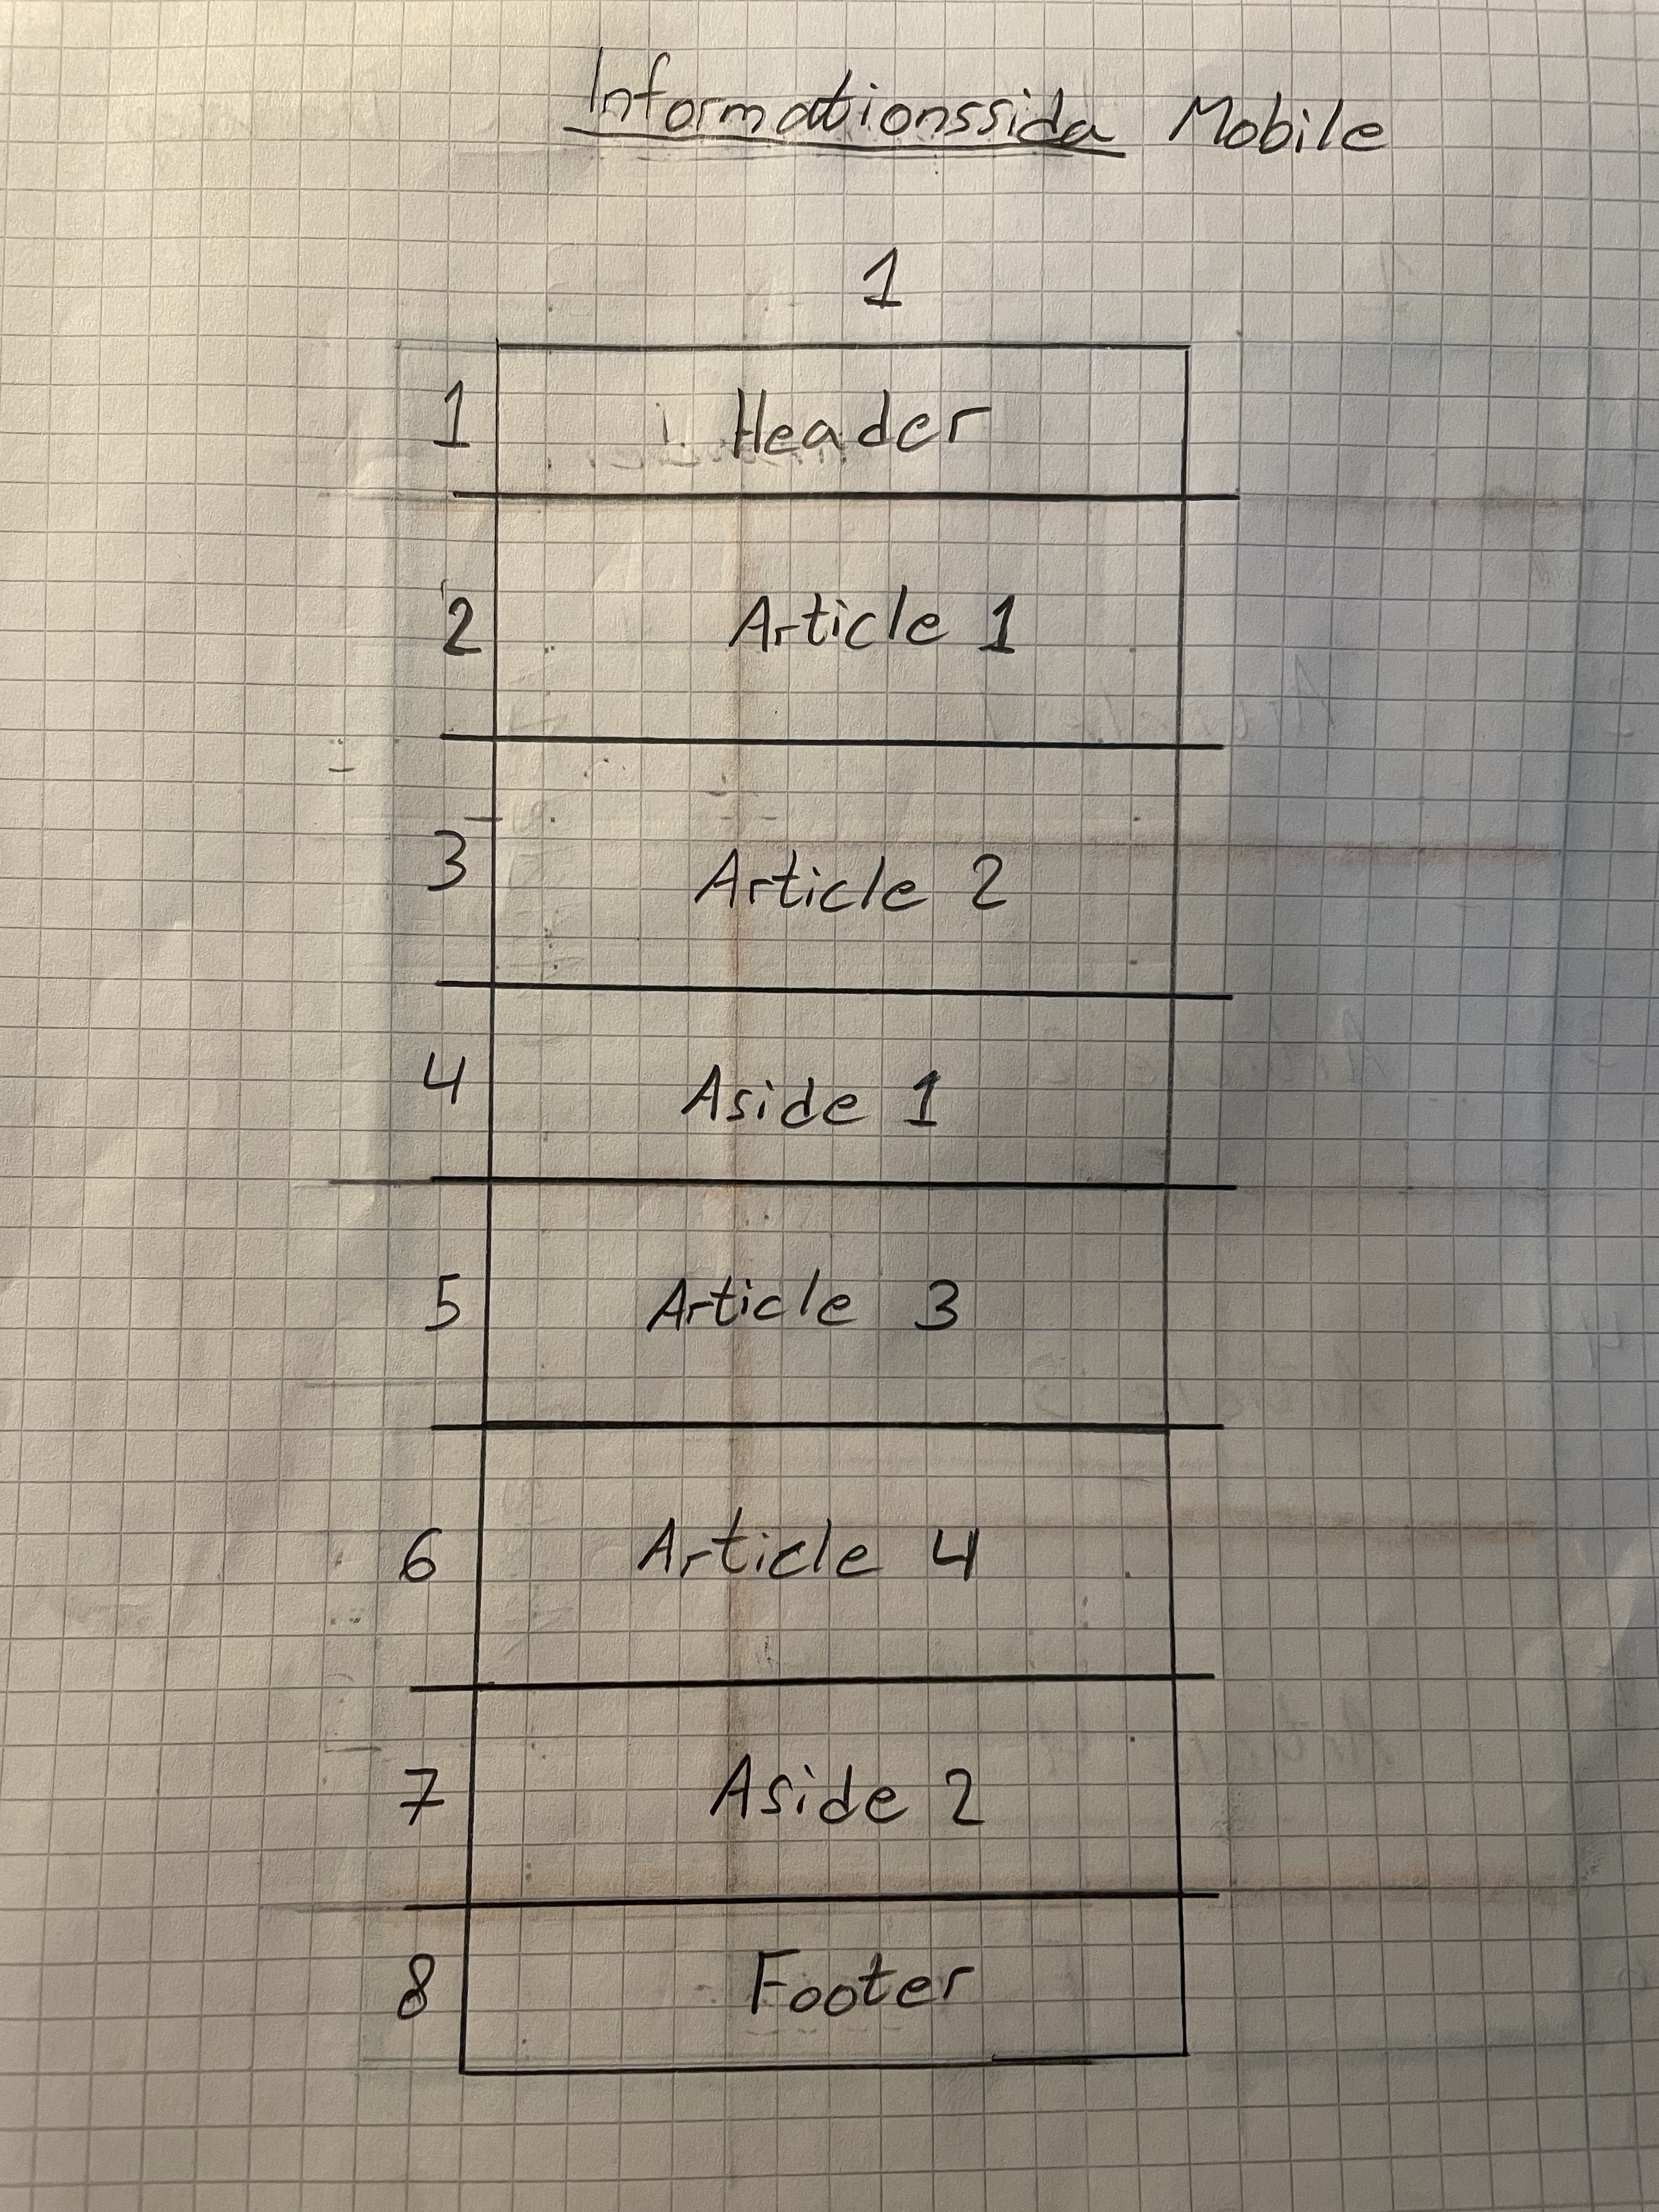 Informationssida Mobile
1
1 Header
2 Article 1
3 Article 2
4 Aside 1
5 Article 3
6 Article 4
7 Aside 2
8 Footer